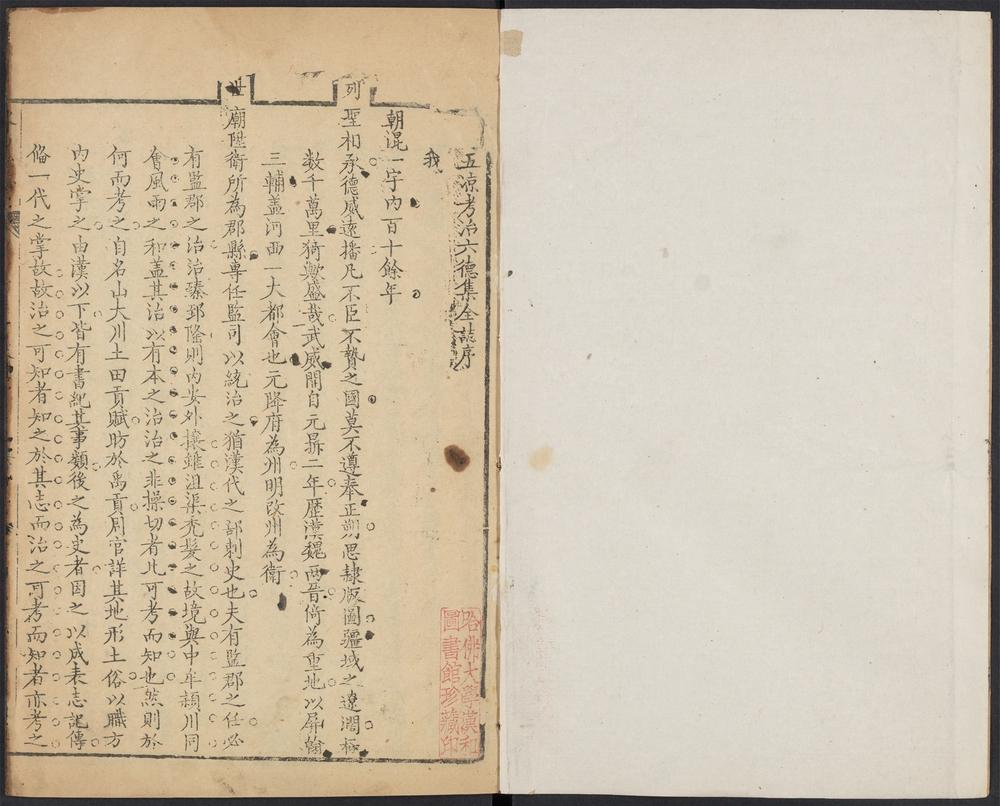 五涼考治六德集全誌序
我
朝混一宇內百十餘年
列聖相承德威遠播凡不臣不贄之國莫不遵奉正朔思隸版圖疆域之遼濶極
數千萬里猗歟盛哉武威開自元鼎二年歷漢魏西晉倚為重地以屏翰
三輔蓋河西一大都會也元降府為州明改州為衛
世廟陞衛所為郡縣專任監司以統治之猶漢代之部刺史也夫有監郡之任必
有監郡之治治臻郅隆則內安外攘雖沮渠禿髮之故境與中牟潁川同
會風雨之和蓋其治以有本之治治之非操切者比可考而知也然則於
何而考之自名山大川土田貢賦昉於禹貢周官詳其地形土俗以職方
內史掌之由漢以下皆有書紀其事類後之為史者因之以成表志記傳
偹一代之掌故故治之可知者知之於其志而治之可考而知者亦考之
哈佛大學漢和
圖書館珍藏印